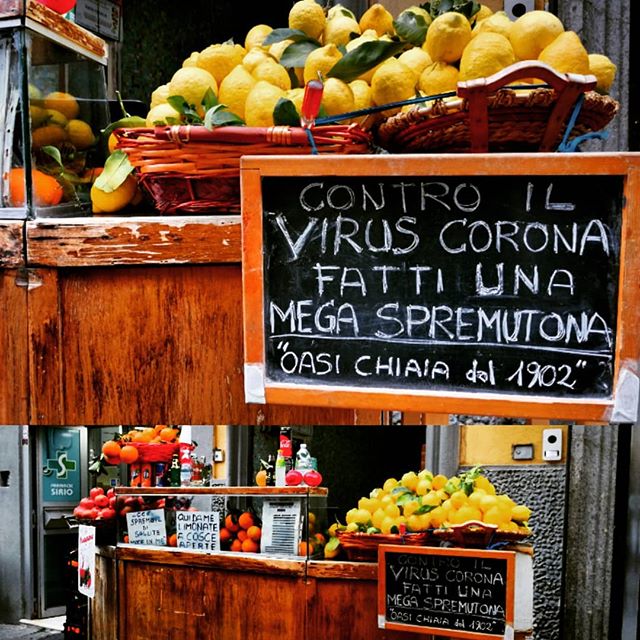 CONTRO IL
VIRUS CORONA
FATTI UNA
MEGA SPREMUTONA
"OASI CHIAIA dal 1902"
FARMACIE
SIRIO
SPREMUTE
DI
SALUTE
MADE IN ME
QUI DA ME
LIMONATE
A COSCE
APERTE
CONTRO IL
VIRUS CORONA
FATTI UNA
MEGA SPREMUTONA
"OASI CHIAIA dal 1902"